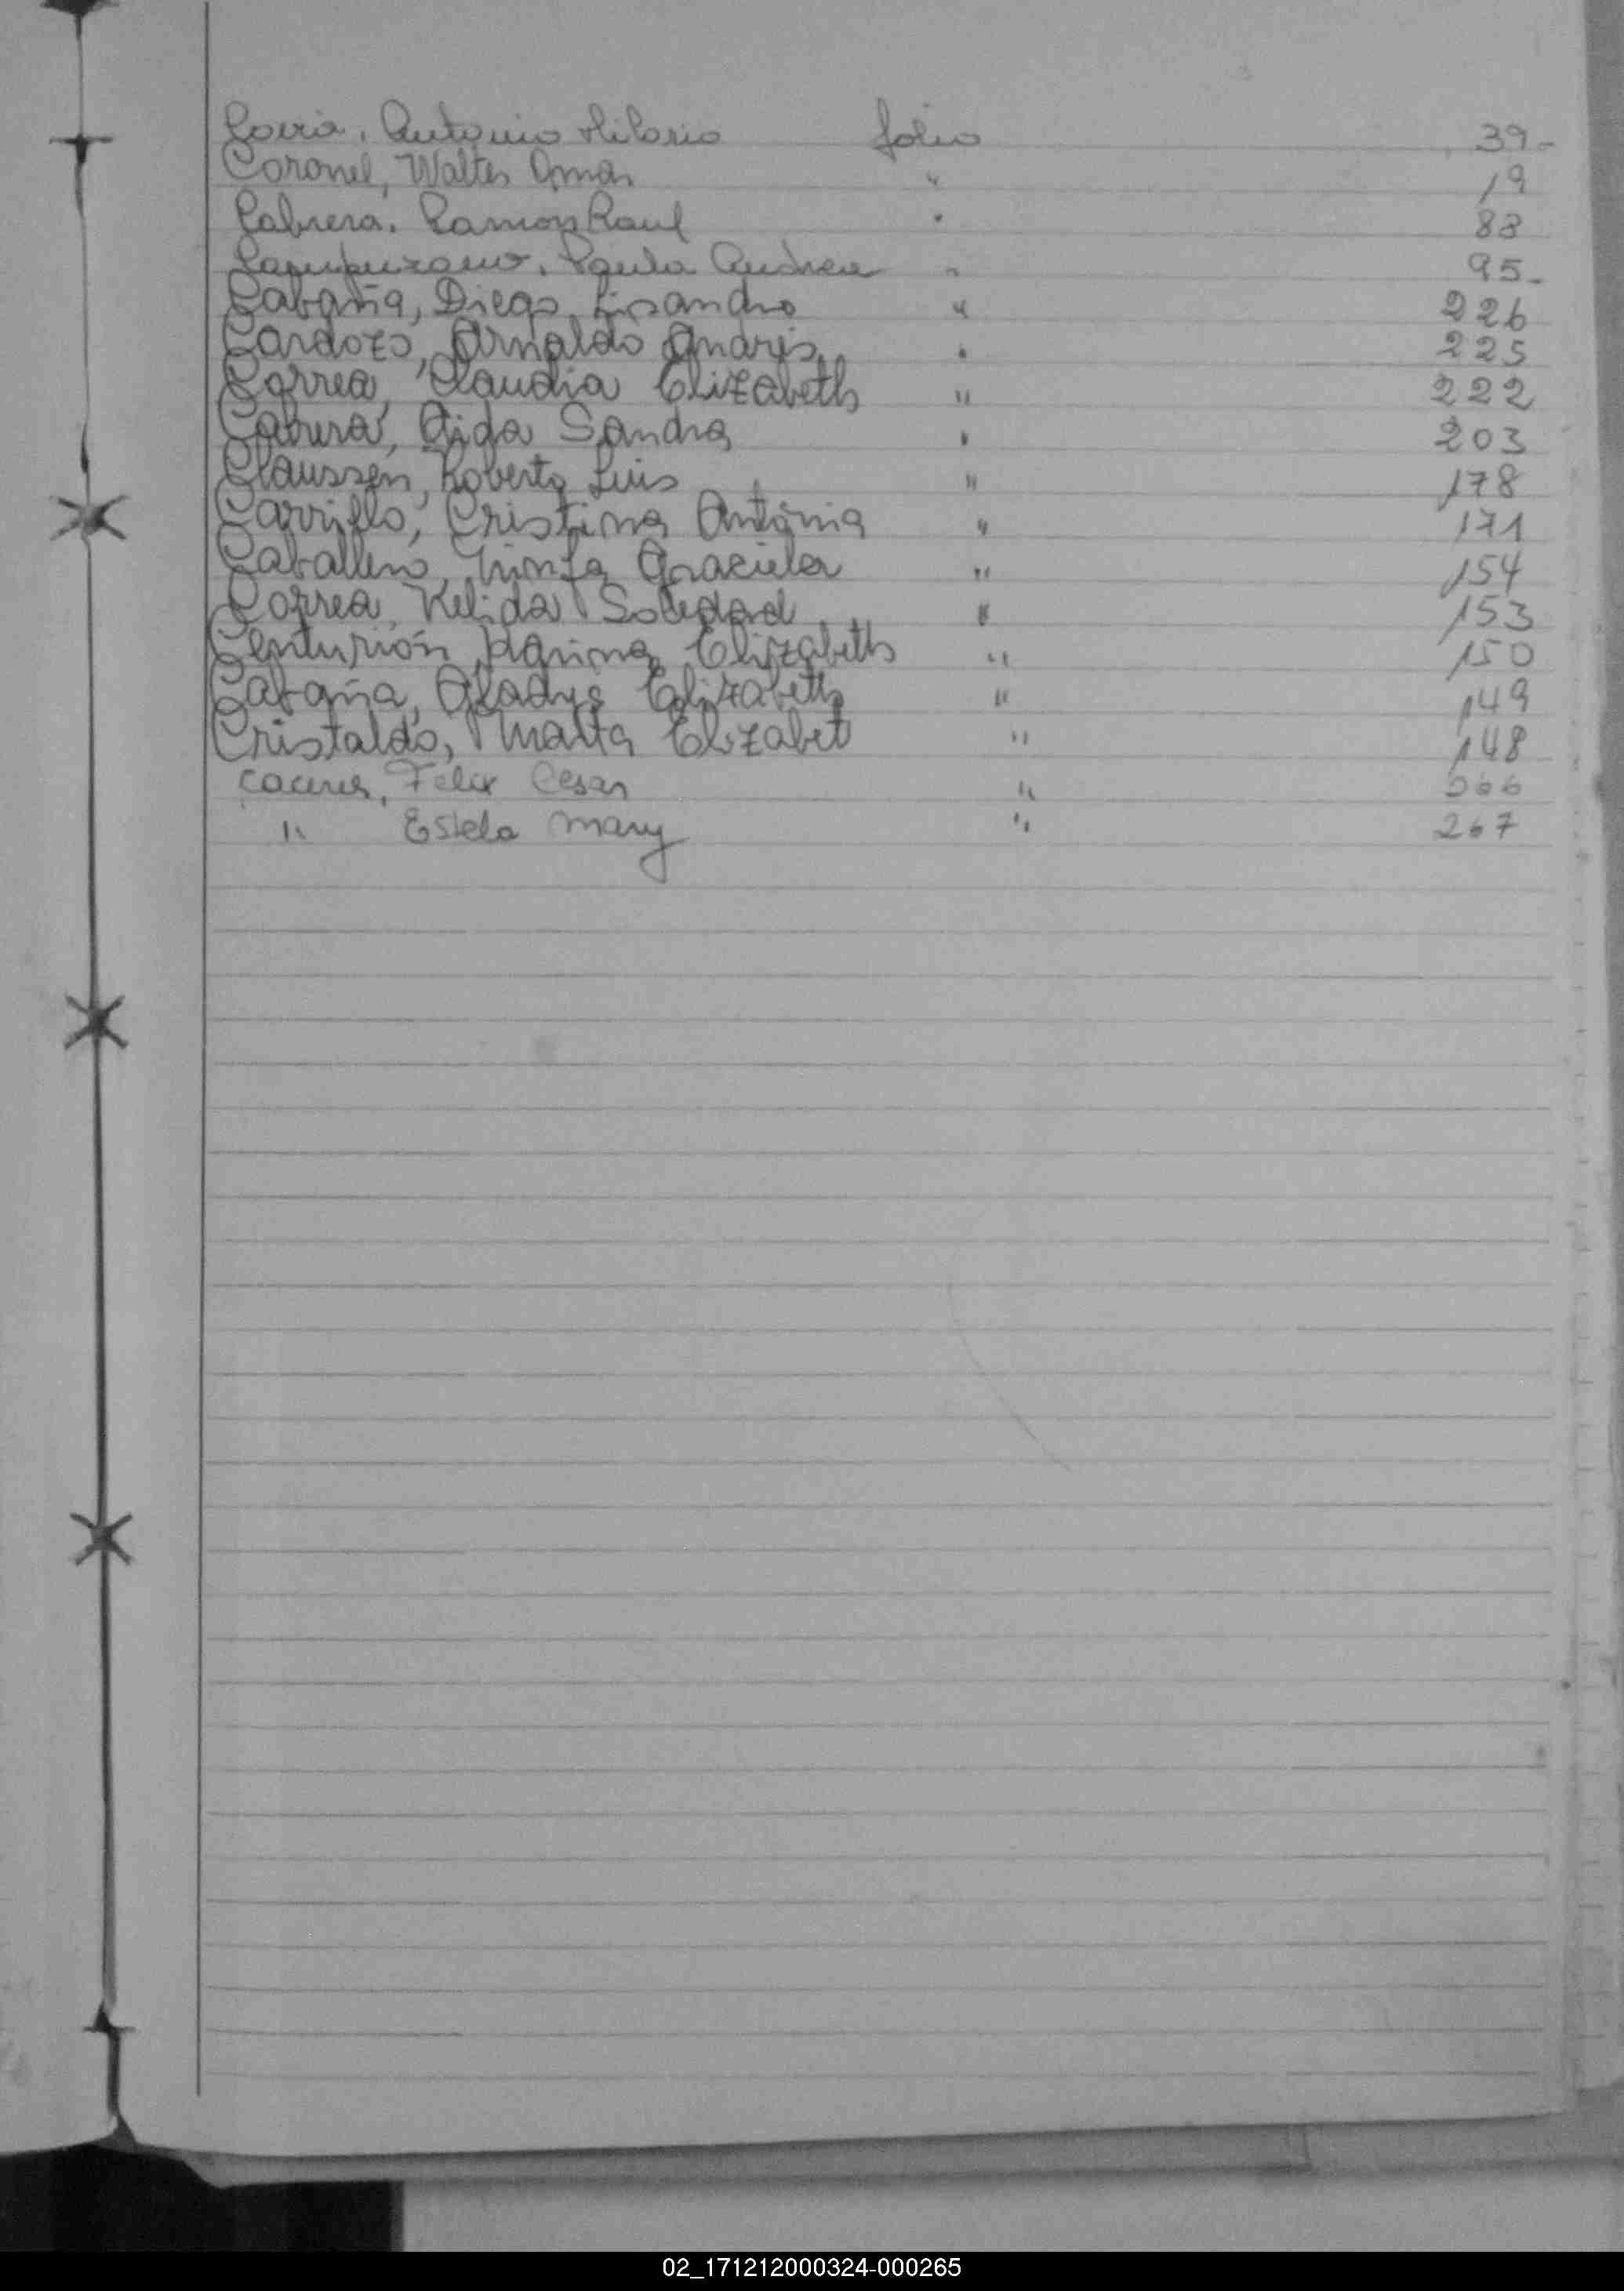 Coria, Antonio Hilario folio 39-
Coronel, Walter Omar " 19
Cabrera, Ramon Raul " 83
Campuzano, Paula Andrea " 95-
Cabaña, Diego Lisandro " 226
Cardozo, Arnaldo Andrés " 225
Correa, Claudia Elizabeth " 222
Cabrera, Aida Sandra " 203
Claussen, Roberto Luis " 178
Carrillo, Cristina Antonia " 171
Caballero, Ninfa Graciela " 154
Correa, Kelida Soledad " 153
Centurión, Karina Elizabeth " 150
Cabaña, Gladys Elizabeth " 149
Cristaldo, Marta Elizabet " 148
Caceres, Felix Cesar " 266
" Estela Mary " 267
02_171212000324-000265